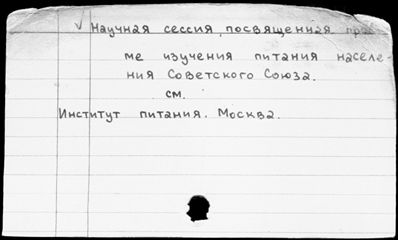 √ Научная сессия, посвященная
ме изучения питания населе-
ния Советского Союза.
см.
Институт питания. Москва.